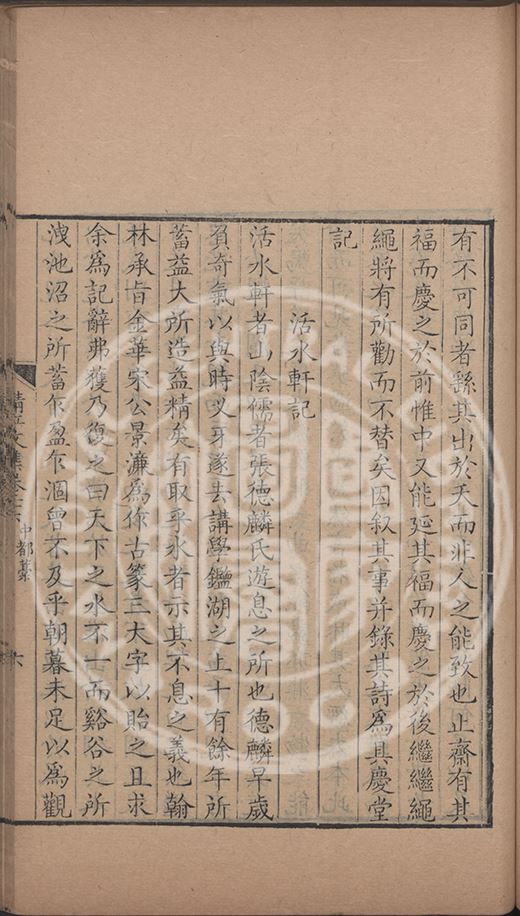 有不可同者繇其出於天而非人之能致也止齋有其
福而慶之於前惟中又能延其福而慶之於後繼繼繩
繩將有所勸而不替矣因叙其事并錄其詩爲具慶堂
記
活水軒記
活水軒者山陰儒者張德麟氏遊息之所也德麟早歲
負奇氣以與時乂牙遂去講學鑑湖之上十有餘年所
蓄益大所造益精矣有取乎水者示其不息之義也翰
林承旨金華宋公景濂爲作古篆三大字以貽之且求
余爲記辭弗獲乃復之曰天下之水不一而谿谷之所
洩池沼之所蓄乍盈乍涸曾不及乎朝暮未足以爲觀
清江文集卷
中都藁